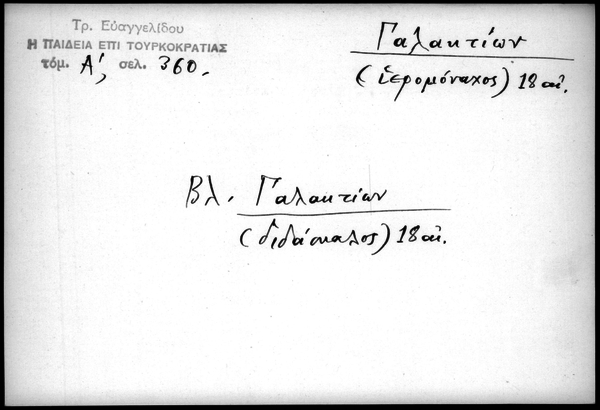 Τρ. Εὐαγγελίδου
Η ΠΑΙΔΕΙΑ ΕΠΙ ΤΟΥΡΚΟΚΡΑΤΙΑΣ
τόμ. Α', σελ. 360.
Γαλακτίων
(ἱερομόναχος) 18 αἰ.
Βλ. Γαλακτίων
(διδάσκαλος) 18 αἰ.